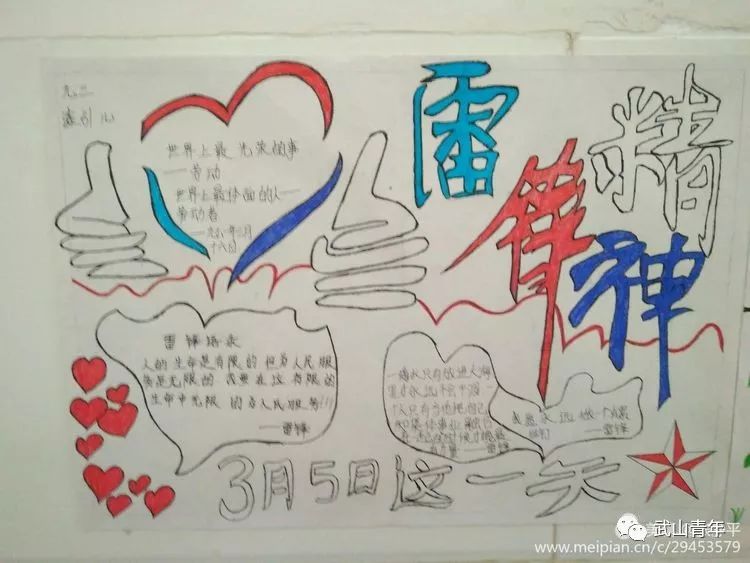 九二
雷锋精神
世界上最光荣的事
——劳动
世界上最体面的人——
劳动者
十六日
雷锋语录
人的生命是有限的 但为人民服
务是无限的 我要在这有限的
生命中无限的为人民服务!!!
——雷锋
一滴水只有放进大海
里才永远不会干涸 一
个人只有当他把自己
和集体事业融合
力量——雷锋
我愿永远做一个螺
丝钉
——雷锋
3月5日这一天
武山青年
www.meipian.cn/c/29453579